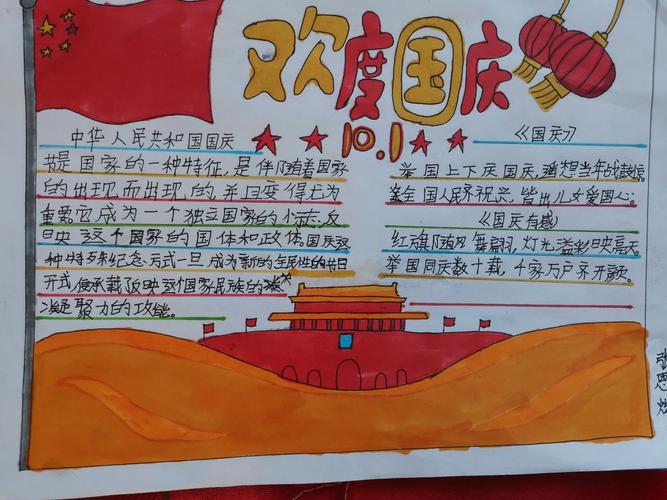 欢度国庆
10.1
中华人民共和国国庆
节是国家的一种特征,是伴随着国家
的出现而出现的,并且变得尤为
重要它成为一个独立国家的标志,反
映这个国家的国体和政体。国庆这
种特殊纪念方式一旦成为新的全民性的节日
形式,便承载反映这个国家民族的
凝聚力的功能。
《国庆》
举国上下庆国庆,遥想当年战鼓
全国人民齐祝兴,皆出儿女爱国心。
《国庆有感》
红旗随风舞翩翩,灯光溢彩映亮天
举国同庆数十载,千家万户齐开颜。
张
恩